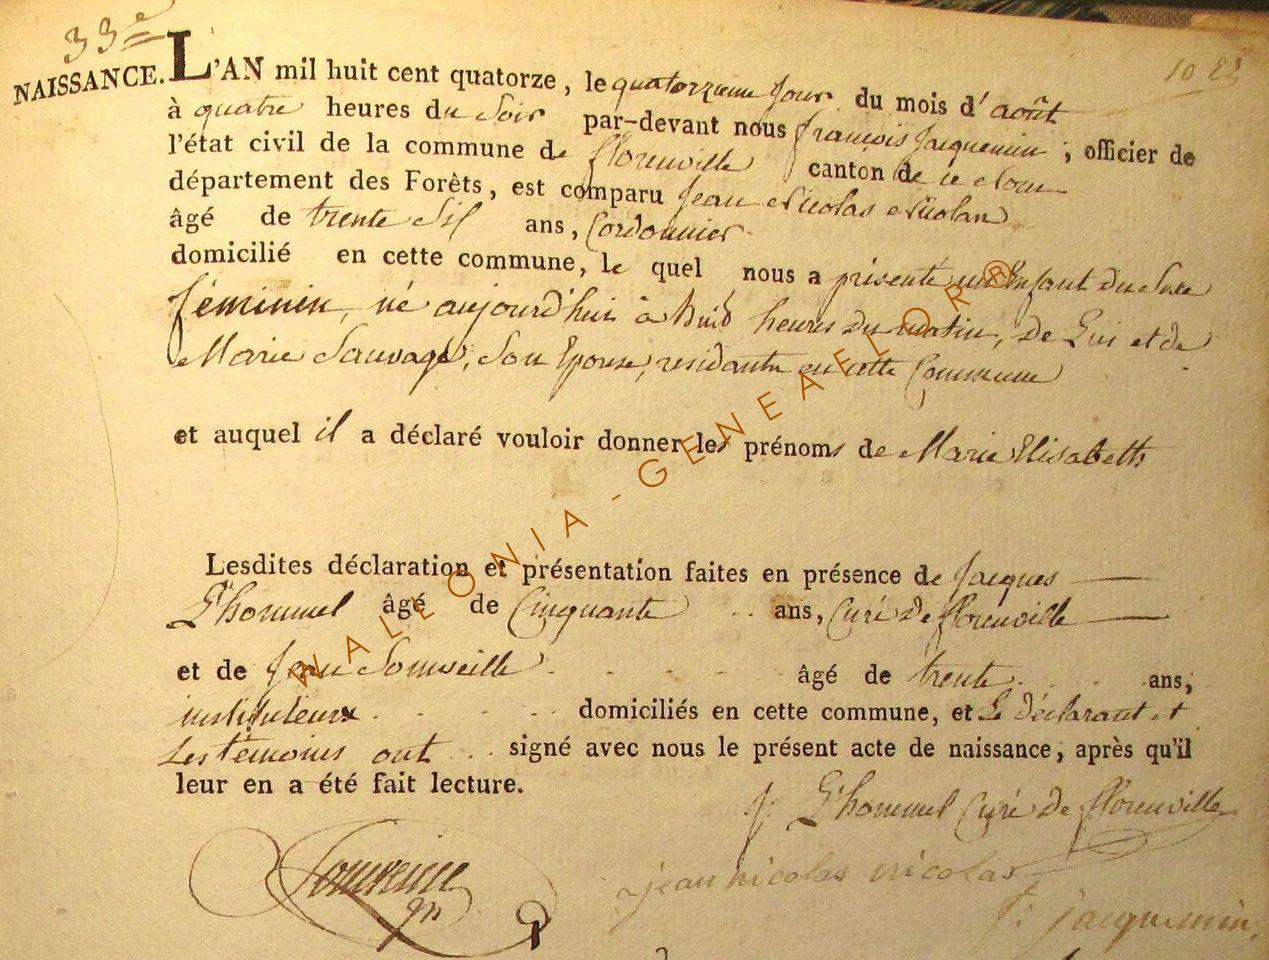 33e
NAISSANCE. L'AN mil huit cent quatorze, le quatorzieme jour du mois d'août
à quatre heures du soir par-devant nous françois Jacquemin, officier de
l'état civil de la commune de florenville canton de ce nom
département des Forêts, est comparu Jean Nicolas Nicolas
âgé de trente Six ans, Cordonnier
domicilié en cette commune, le quel nous a présenté un Enfant du Sexe
féminin, né aujourd'hui à huit heures du matin, de Lui et de
Marie Sauvage, Son Epouse, residante en cette Commune
et auquel il a déclaré vouloir donner les prénoms de Marie Elisabeth
Lesdites déclaration et présentation faites en présence de Jacques
L'hommel âgé de Cinquante ans, Curé de florenville
et de Jean âgé de trente ans,
instituteur domiciliés en cette commune, et Le déclarant et
Les témoins ont signé avec nous le présent acte de naissance, après qu'il
leur en a été fait lecture.
J. L'hommel Curé de florenville
jean nicolas nicolas
f. jacquemin
WALLONIA-GENEALOR®